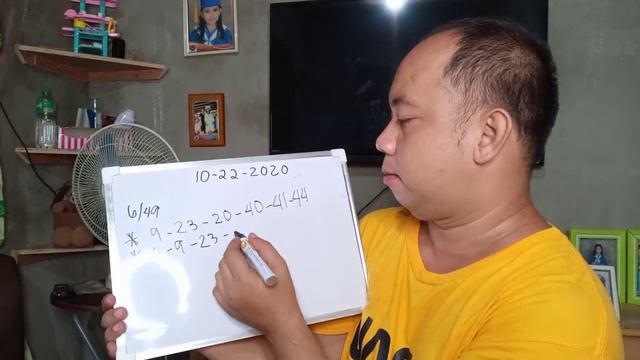 10-22-2020
6/49
* 9-23-20-40-41-44
-9-23-